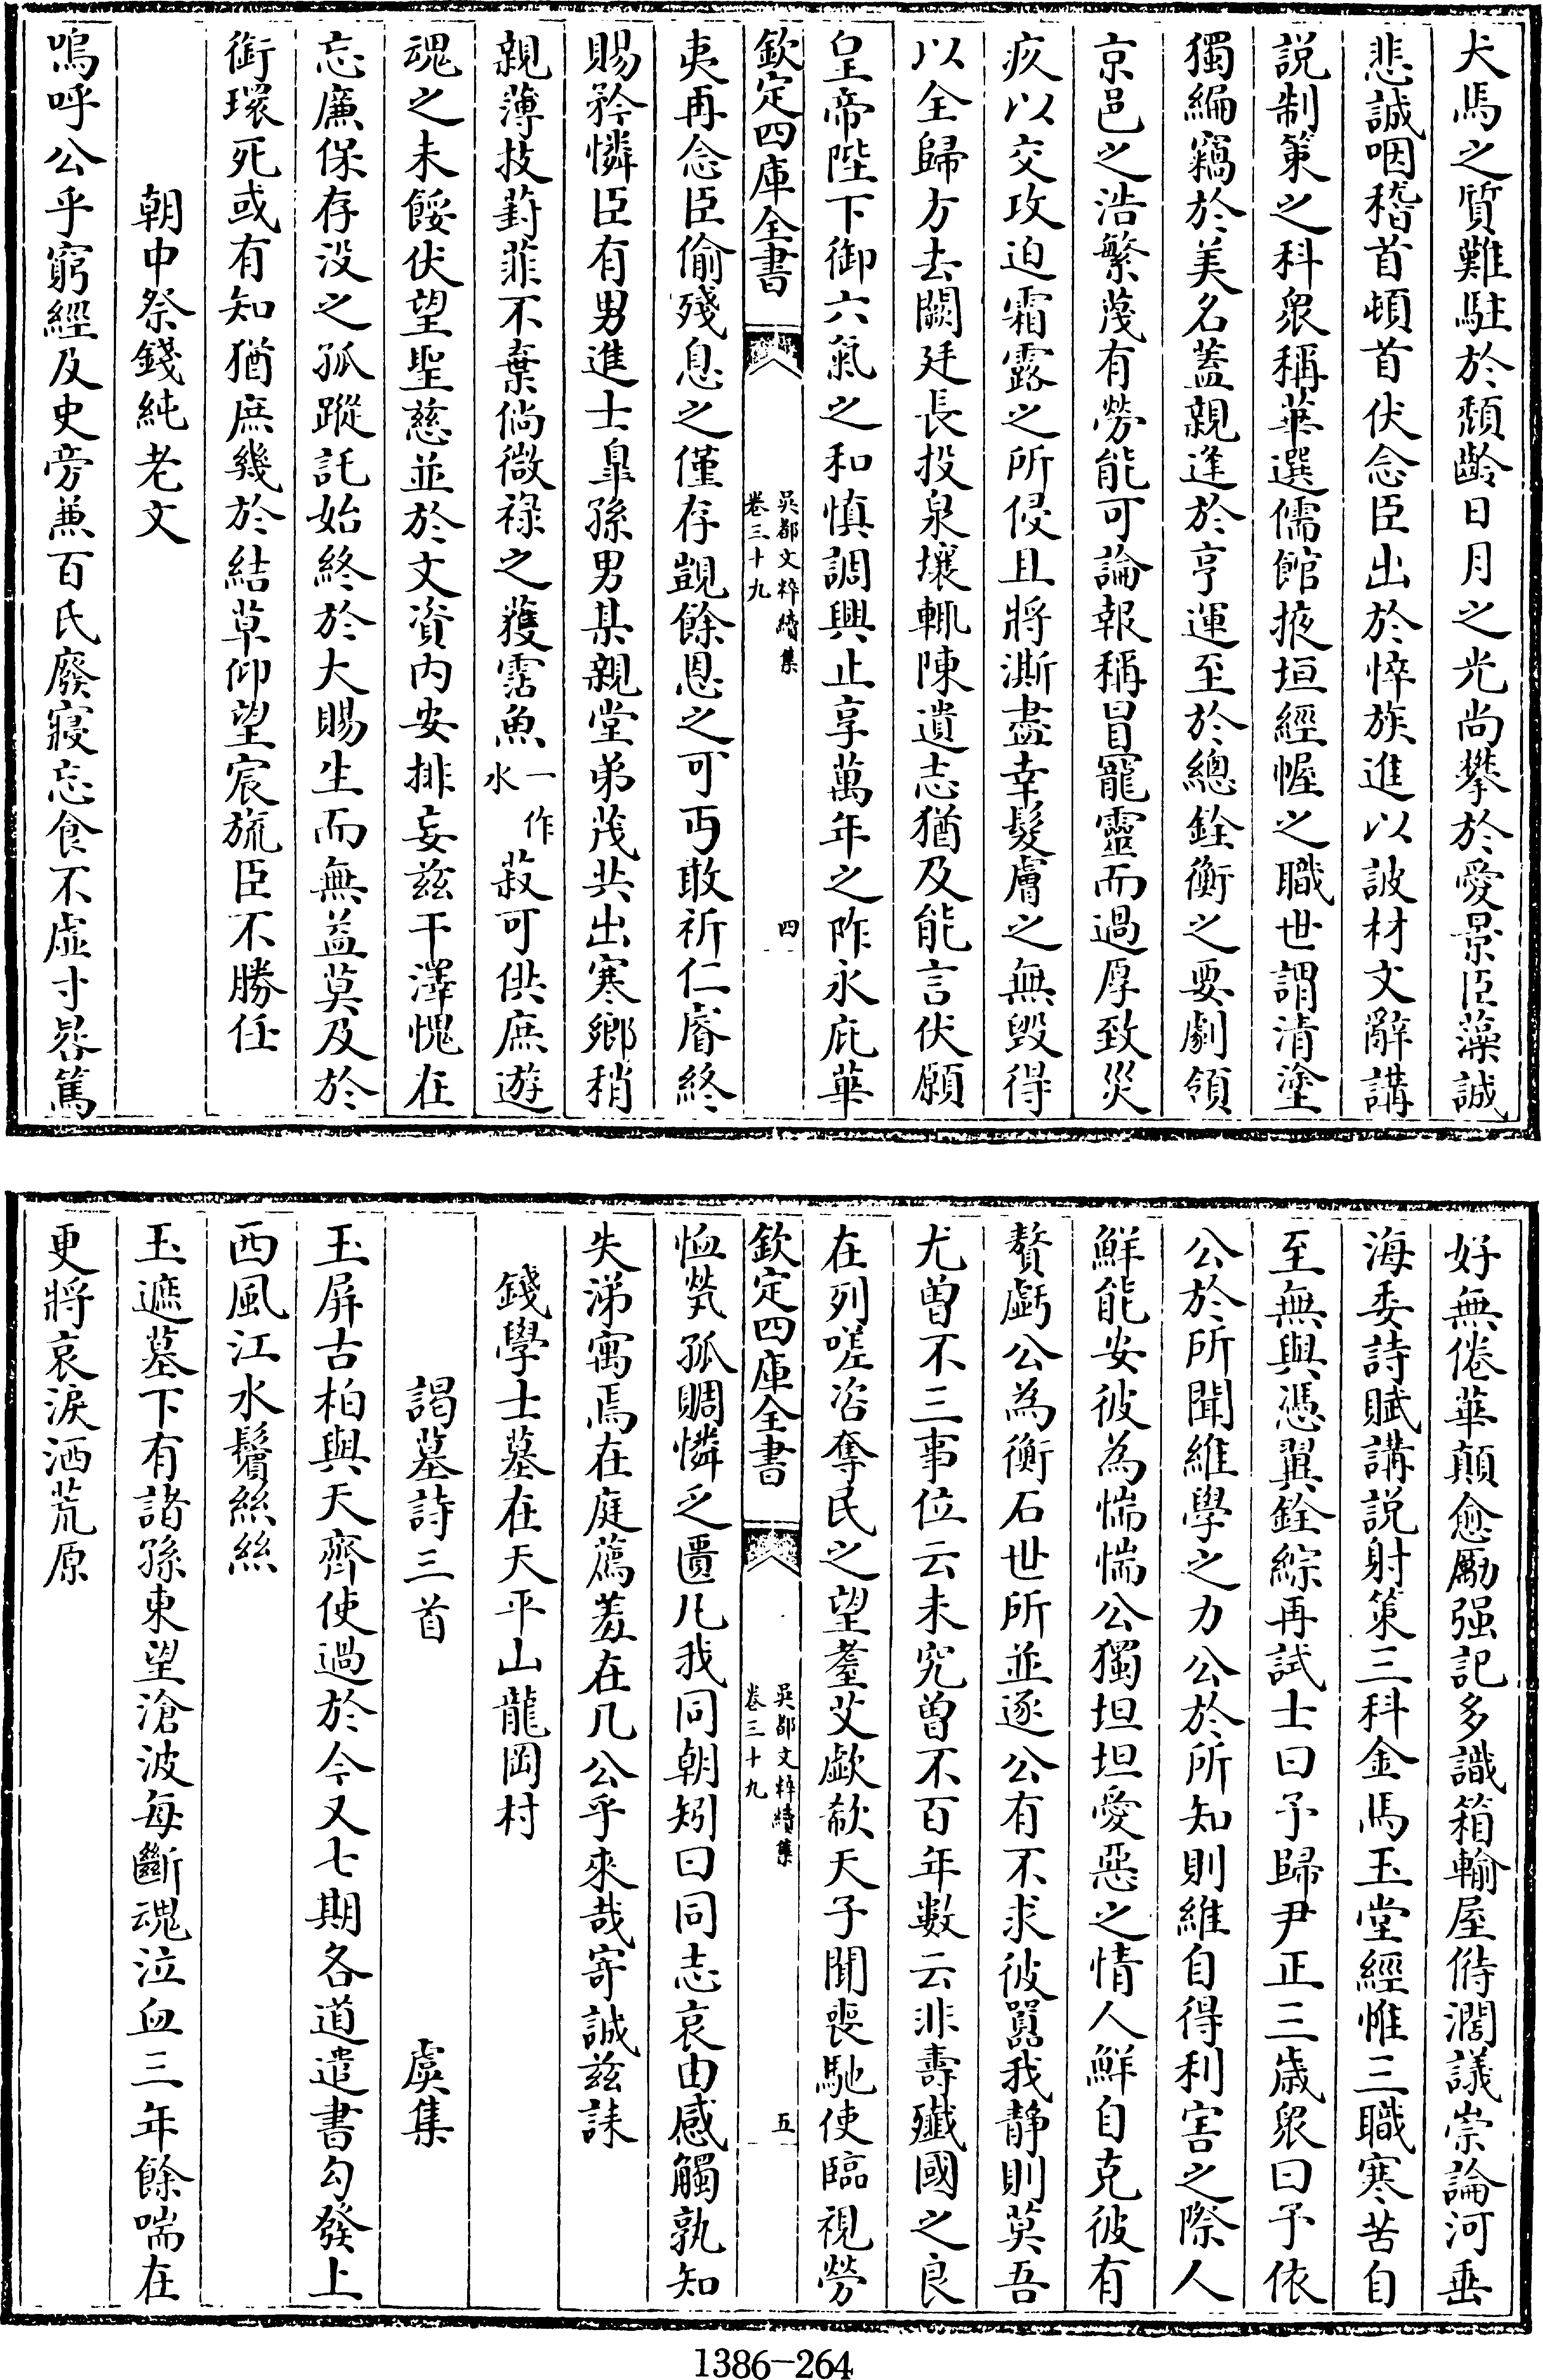 犬馬之質難駐於頽齡日月之光尚攀於愛景臣藻誠
悲誠咽稽首頓首伏念臣出於悴族進以詖材文辭講
説制䇿之科衆稱華選儒館掖垣經幄之職世謂清塗
獨編竊於美名蓋親逢於亨運至於總銓衡之要劇領
京邑之浩繁蔑有勞能可論報稱冒寵靈而過厚致災
疚以交攻迫霜露之所侵且將澌盡幸髮膚之無毀得
以全歸方去闕廷長投泉壤輒陳遺志猶及能言伏願
皇帝陛下御六氣之和慎調興止享萬年之阼永庇華
欽定四庫全書
吳都文粹續集
卷三十九
四
夷再念臣偷殘息之僅存覬餘恩之可丐敢祈仁睿終
賜矜憐臣有男進士臯孫男某親堂弟茂共出寒鄉稍
親薄技葑菲不棄倘微禄之獲霑魚
一作
水
菽可供庶遊
魂之未餒伏望聖慈並於文資内安排妄兹干澤愧在
忘廉保存没之孤蹤託始終於大賜生而無益莫及於
銜環死或有知猶庶幾於結草仰望宸旒臣不勝任
朝中祭錢純老文
嗚呼公乎窮經及史旁兼百氏廢寢忘食不虛寸晷篤
好無倦華顛愈勵强記多識箱輸屋偫濶議崇論河垂
海委詩賦講説射策三科金馬玉堂經帷三職寒苦自
至無與憑翼銓綜再試士曰予歸尹正三歳衆曰予依
公於所聞維學之力公於所知則維自得利害之際人
鮮能安彼為惴惴公獨坦坦愛惡之情人鮮自克彼有
贅虧公為衡石世所並逐公有不求彼嚚我靜則莫吾
尤曾不三事位云未究曾不百年數云非壽殱國之良
在列嗟咨奪民之望耋艾歔欷天子聞喪馳使臨視勞
欽定四庫全書
吳都文粹續集
卷三十九
五
恤煢孤賙憐乏匱凡我同朝矧曰同志哀由感觸孰知
失涕寓焉在庭薦羞在几公乎來哉寄誠兹誄
錢學士墓在天平山龍岡村
謁墓詩三首
虞集
玉屏古柏與天齊使過於今又七期各道遣書勾發上
西風江水鬢絲絲
玉遮墓下有諸孫東望滄波每斷魂泣血三年餘喘在
更將哀淚洒荒原
1386-264